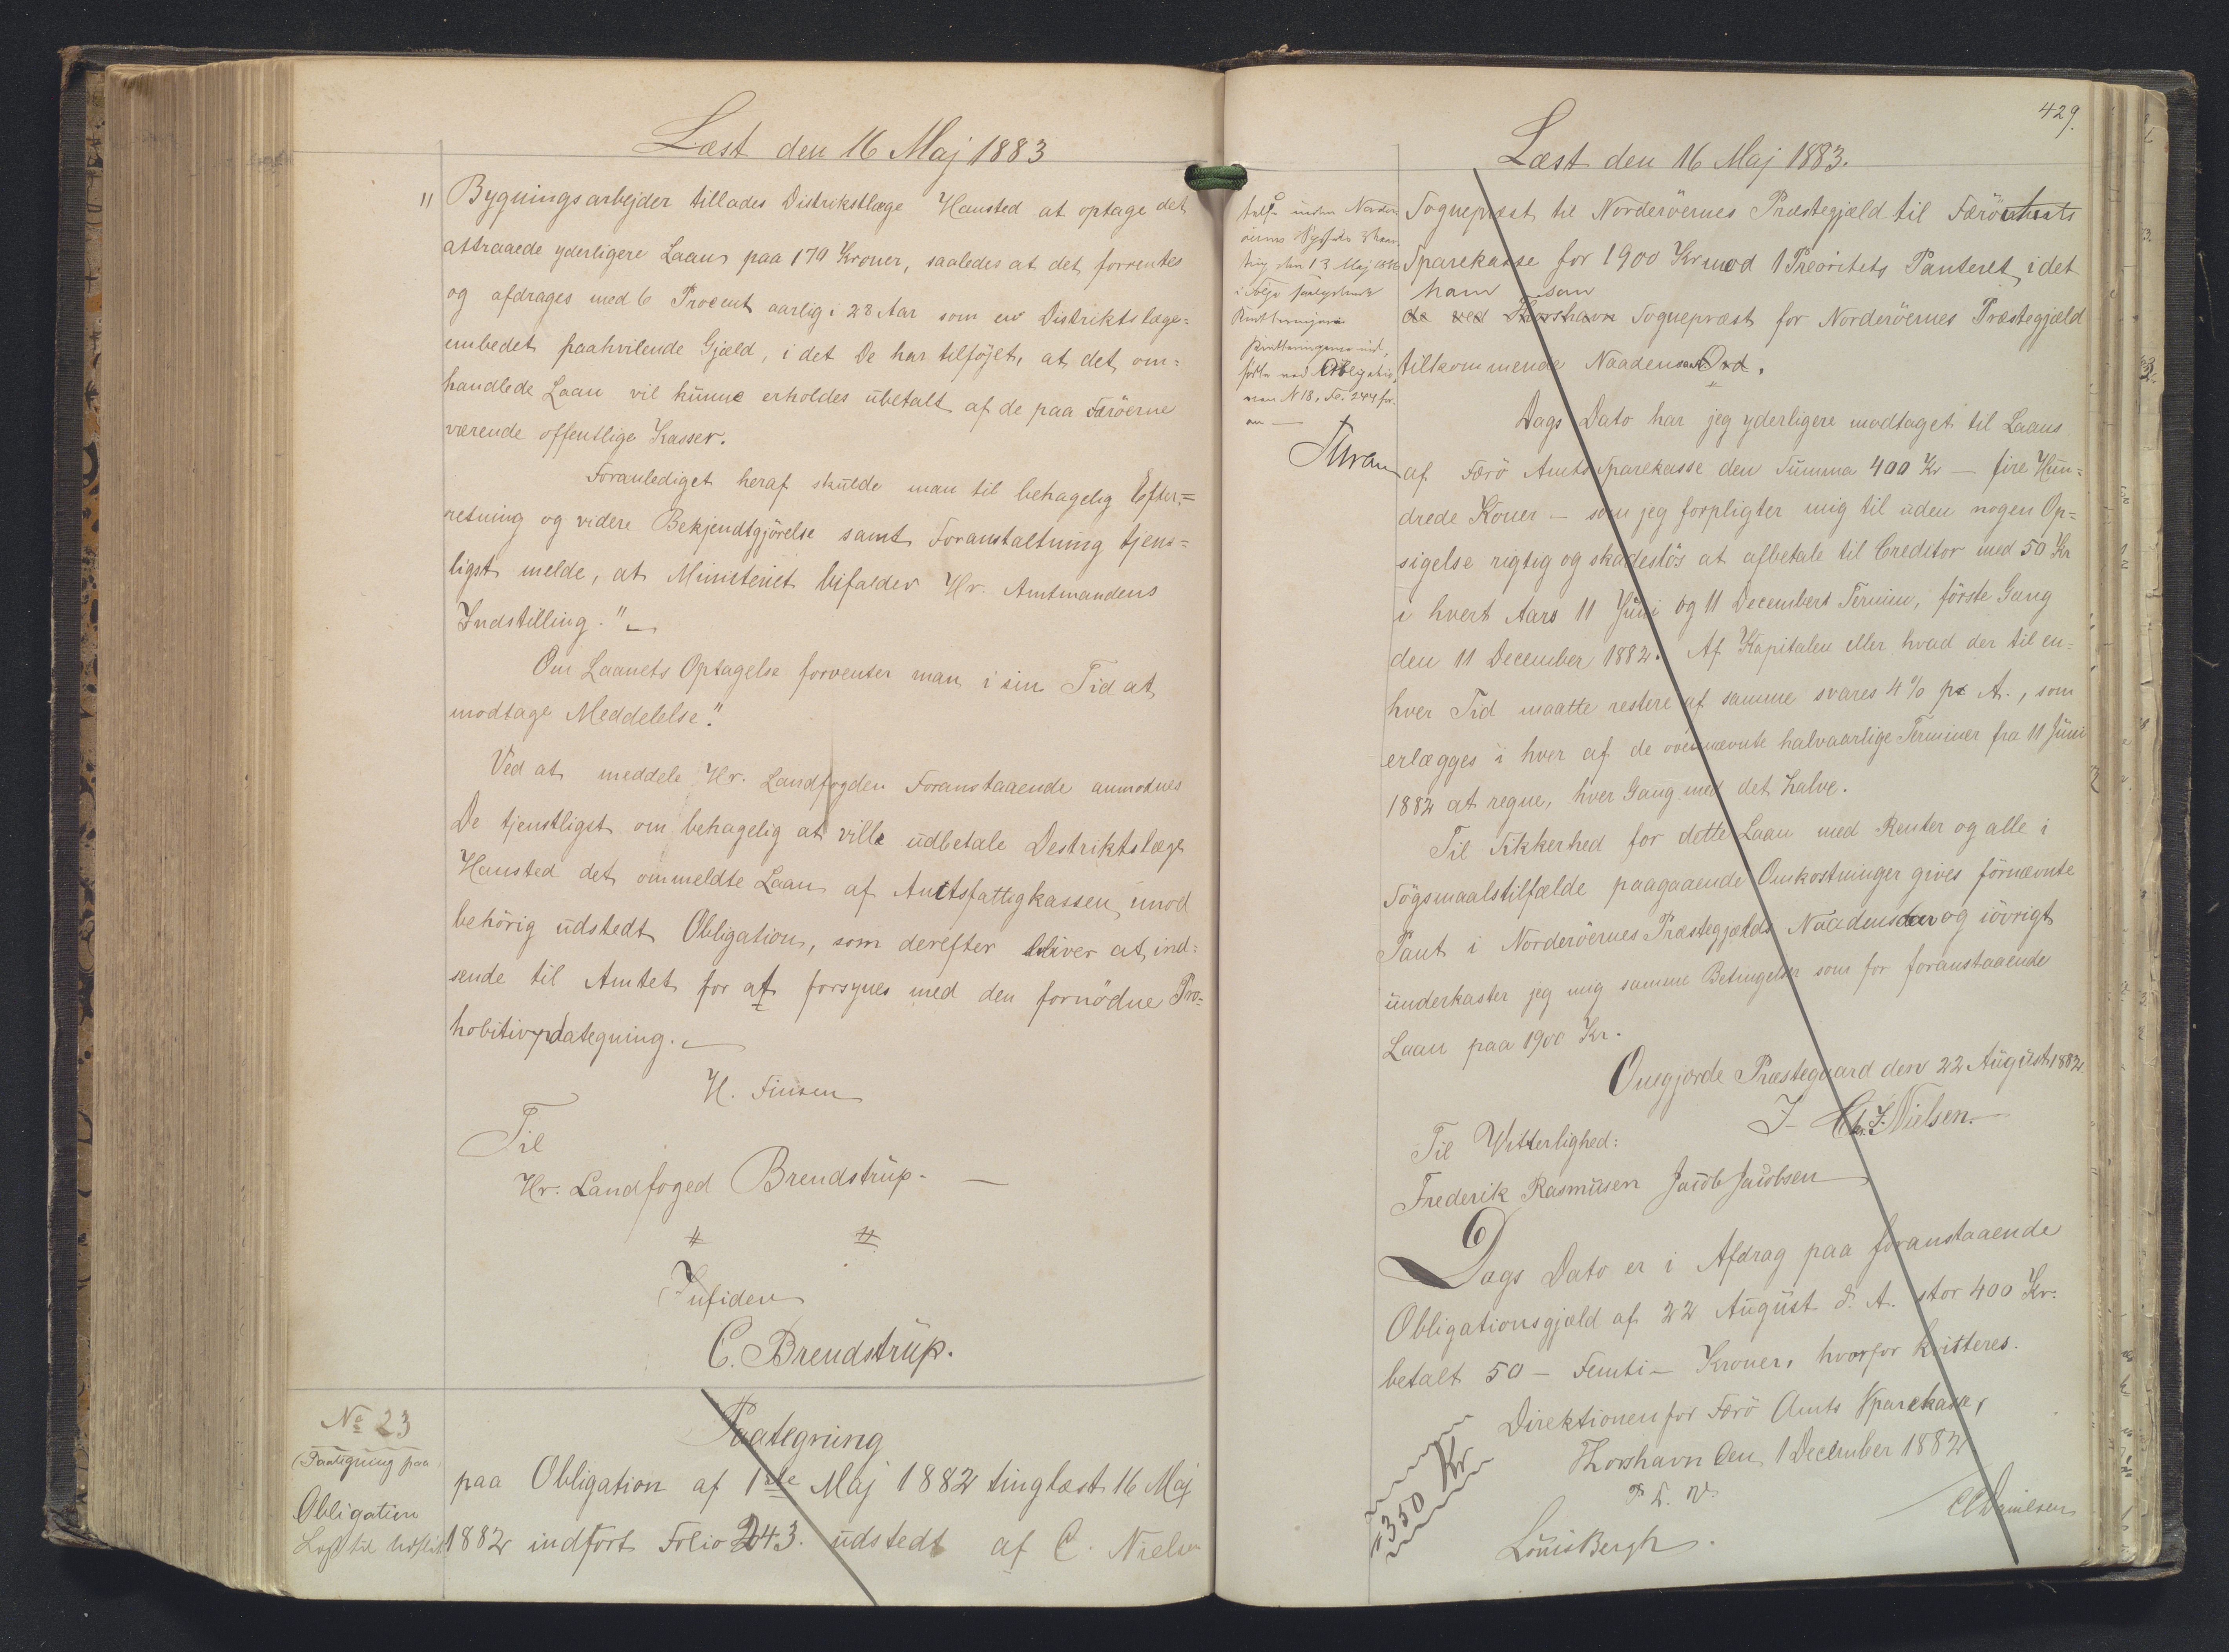 Læst den 16 Maj 1883
" Bygningsarbejder tillades Distrikstlæge Hansted at optage det
attraaede yderligere Laan paa 179 Kroner, saaledes at det forrentes
og afdrages med 6 Procent aarlig i 28 Aar som en Distriktslæge=
embedet paahvilende Gjæld, i det De har tilföjet, at det om=
handlede Laan vil kunne erholdes ubetalt af de paa Færöerne
værende offentlige Kasser.
Foranlediget heraf skulde man til behagelig Efter=
retning og videre Bekjendtgjörelse samt Foranstaltning tjenst=
ligst melde, at Ministeriet bifalder Hr. Amtmandens
Indstilling."
Om Laanets Optagelse forventer man i sin Tid at
modtage Meddelelse."
Ved at meddele Hr. Landfogden Foranstaaende anmodes
De tjenstligst om behagelig at ville udbetale Destriktslæge
Hansted det ommeldte Laan af Amtsfattigkassen, mod
behörig udstedt Obligation, som derefter bliver at ind=
sende til Amtet for at forsynes med den fornödne Pro=
hobitivpaategning.
H. Finsen
Til
Hr. Landfoged Brendstrup.
In fidem
C. Brendstrup.
No 23
Paategning paa
Obligation
Paategning
paa Obligation af 1ste Maj 1882 tinglæst 16 Maj
1882 indfört Folio 243. udstedt af C. Nielsen
429.
Læst den 16 Maj 1883.
Sognepræst til Norderöernes Præstegjæld til Færö Amts
Sparekasse for 1900 Kr mod 1 Preoritets Panteret i det
ham som
de ved Thorshavn Sognepræst for Norderöernes Præstegjæld
tilkommende Naadensaar.
Dags Dato har jeg yderligere modtaget til Laans
af Færö Amts Sparekasse den Summa 400 Kr — fire Hun=
drede Kroner — som jeg forpligter mig til uden nogen Op=
sigelse rigtig og skadeslös at afbetale til Creditor med 50 Kr
i hvert Aars 11 Juni og 11 Decembers Termin, förste Gang
den 11 December 1882. Af Kapitalen eller hvad der til en=
hver Tid maatte restere af samme svares 4% pr A., som
erlægges i hver af de ovennævnte halvaarlige Terminer fra 11 Juni
1882 at regne, hver Gang med det halve.
Til Sikkerhed for dette Laan med Renter og alle i
Sögsmaalstilfælde paagaaende Omkostninger gives fornævnte
Pant i Norderöernes Præstegjælds Naadensaar og iövrigt
underkaster jeg mig samme Betingelser som for foranstaaende
Laan paa 1900 Kr.
Onegjærde Præstegaard den 22 August 1882.
Chr. J. Nielsen.
Til Vitterlighed:
Frederik Rasmusen Jacob Jacobsen
Dags Dato er i Afdrag paa foranstaaende
Obligationsgjæld af 22 August d. A. stor 400 Kr.
betalt 50 — Femti — Kroner, hvorfor kvitteres.
Direktionen for Færö Amts Sparekasse,
Thorshavn den 1 December 1882
350 Kr
Louis Bergh.
telse inden Norder
ting den 13 Maj 1886
ved Obligatio-
nen N 18, Fo. 244 for
an —